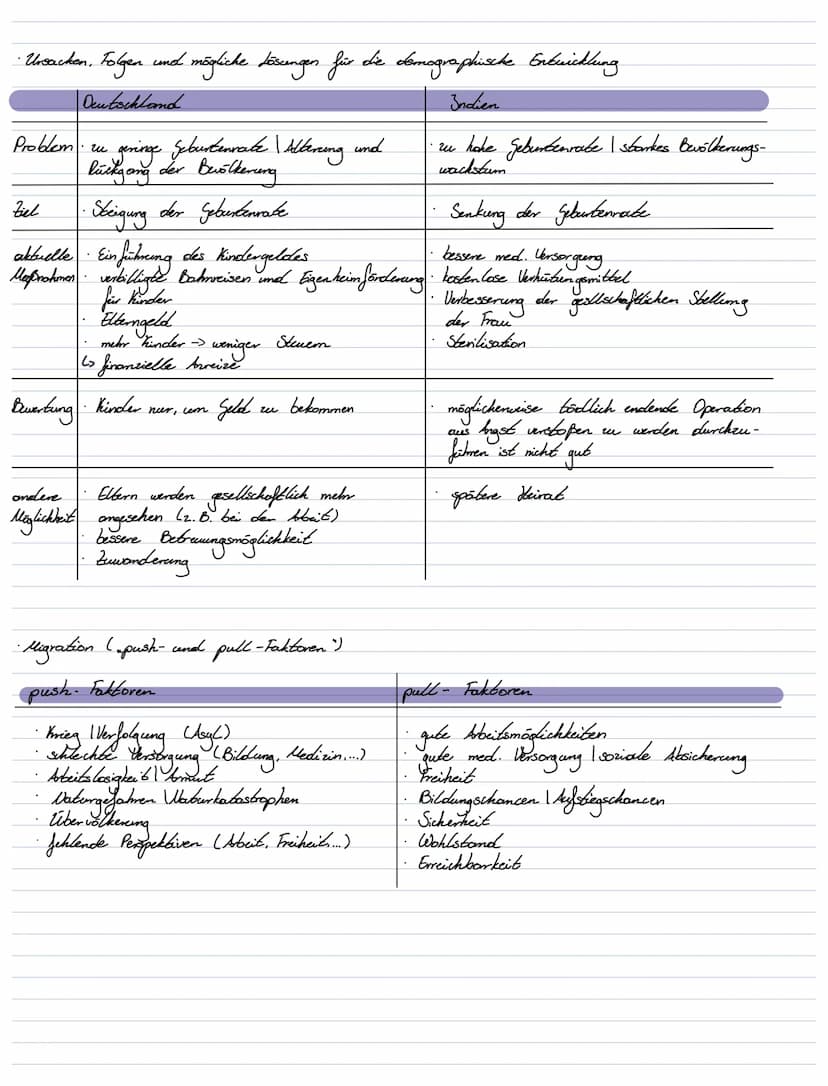 · Ursachen, Folgen und mögliche Lösungen für die demographische Entwicklung
Deutschland
Indien
Problem
· zu geringe Geburtenrate | Alterung und
Rückgang der Bevölkerung
· zu hohe Geburtenrate | starkes Bevölkerungs-
wachstum
Ziel
· Steigung der Geburtenrate
· Senkung der Geburtenrate
aktuelle
Maßnahmen
· Einführung des Kindergeldes
· verbilligte Bahnreisen und Eigenheimförderung
für Kinder
· Elterngeld
· mehr Kinder → weniger Steuern
↳ finanzielle Anreize
· bessere med. Versorgung
· kostenlose Verhütungsmittel
· Verbesserung der gesllschaftlichen Stellung
der Frau
· Sterilisation
Bewertung
· Kinder nur, um Geld zu bekommen
· möglicherweise tödlich endende Operation
aus Angst verstoßen zu werden durchzu-
führen ist nicht gut
andere
Möglichkeit
· Eltern werden gesellschaftlich mehr
angesehen (z.B. bei der Arbeit)
· bessere Betreuungsmöglichkeit
· Zuwanderung
· spätere Heirat
· Migration („push- und pull-Faktoren")
push- Faktoren
pull- Faktoren
· Krieg | Verfolgung (Asyl)
· schlechte Versorgung (Bildung, Medizin,...)
· Arbeitslosigkeit | Armut
· Naturgefahren | Naturkatastrophen
· Übervölkerung
· fehlende Perspektiven (Arbeit, Freiheit...)
· gute Arbeitsmöglichkeiten
· gute med. Versorgung | soziale Absicherung
· Freiheit
· Bildungschancen | Aufstiegschancen
· Sicherheit
· Wohlstand
· Erreichbarkeit